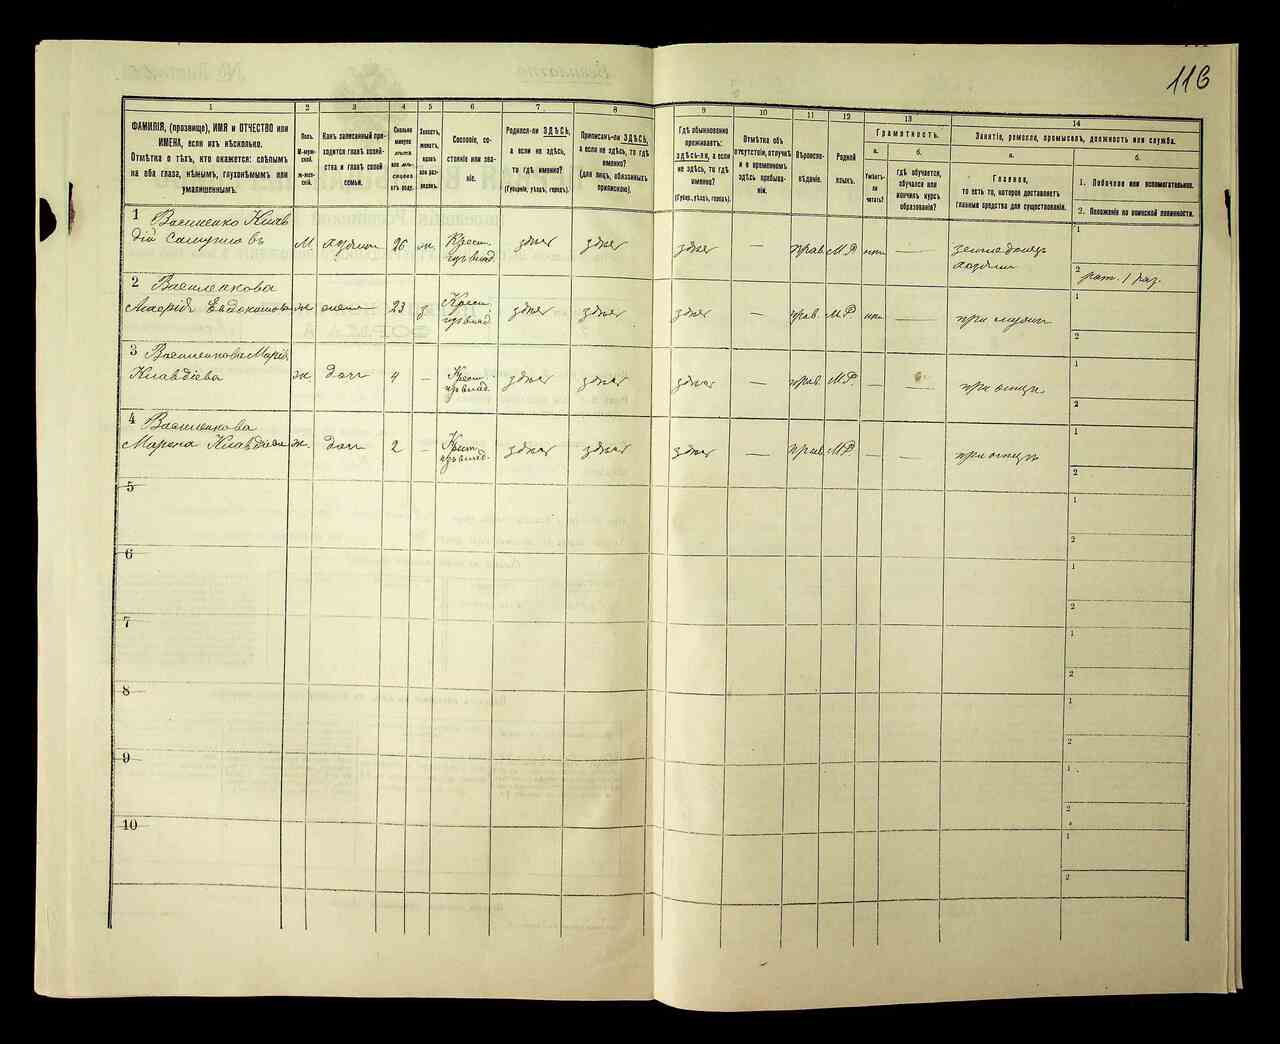 116
1
2
3
4
5
6
7
8
9
10
11
12
13
14
ФАМИЛІЯ, (прозвище), ИМЯ и ОТЧЕСТВО или
ИМЕНА, если ихъ нѣсколько.
Отмѣтка о тѣхъ, кто окажется: слѣпымъ
на оба глаза, нѣмымъ, глухонѣмымъ или
умалишеннымъ.
Полъ.
М-муж-
ской.
ж-жен-
скій.
Какъ записанный при-
ходится главѣ хозяй-
ства и главѣ своей
семьи.
Сколько
минуло
лѣтъ
или мѣ-
сяцевъ
отъ роду.
Холостъ,
женатъ,
вдовъ
или раз-
веденъ.
Сословіе, со-
стояніе или зва-
ніе.
Родился-ли ЗДѢСЬ,
а если не здѣсь,
то гдѣ именно?
(Губернія, уѣздъ, городъ).
Приписанъ-ли ЗДѢСЬ,
а если не здѣсь, то гдѣ
именно?
(Для лицъ, обязанныхъ
припиской).
Гдѣ обыкновенно
проживаетъ:
здѣсь-ли, а если
не здѣсь, то гдѣ
именно?
(Губер., уѣздъ, городъ).
Отмѣтка объ
отсутствіи, отлучкѣ
и о временномъ
здѣсь пребыва-
ніи.
Вѣроиспо-
вѣданіе.
Родной
языкъ.
Грамотность.
а.
Умѣетъ-
ли
читать?
б.
гдѣ обучается,
обучался или
кончилъ курсъ
образованія?
Занятіе, ремесло, промыселъ, должность или служба.
а.
Главное,
то есть то, которое доставляетъ
главныя средства для существованія.
б.
1. Побочное или вспомогательное.
2. Положеніе по воинской повинности.
1 Василенко Клав
дій М. 26 ж. Крест. здѣсь здѣсь здѣсь — прав. М.Р. —
1
2
2 Василенкова
Евдокимова ж 23 з Крест. здѣсь здѣсь здѣсь — прав. М.Р. — при мужѣ
1
2
3 Василенкова Марія
Клавдіева ж. дочь 4 — Крест. здѣсь здѣсь здѣсь — прав. М.Р. — — при отцѣ
1
2
4 Василенкова
Марена Клавдіева ж. дочь 2 — Крест. здѣсь здѣсь здѣсь — прав. М.Р. — — при отцѣ
1
2
5
1
2
6
1
2
7
1
2
8
1
2
9
1
2
10
1
2